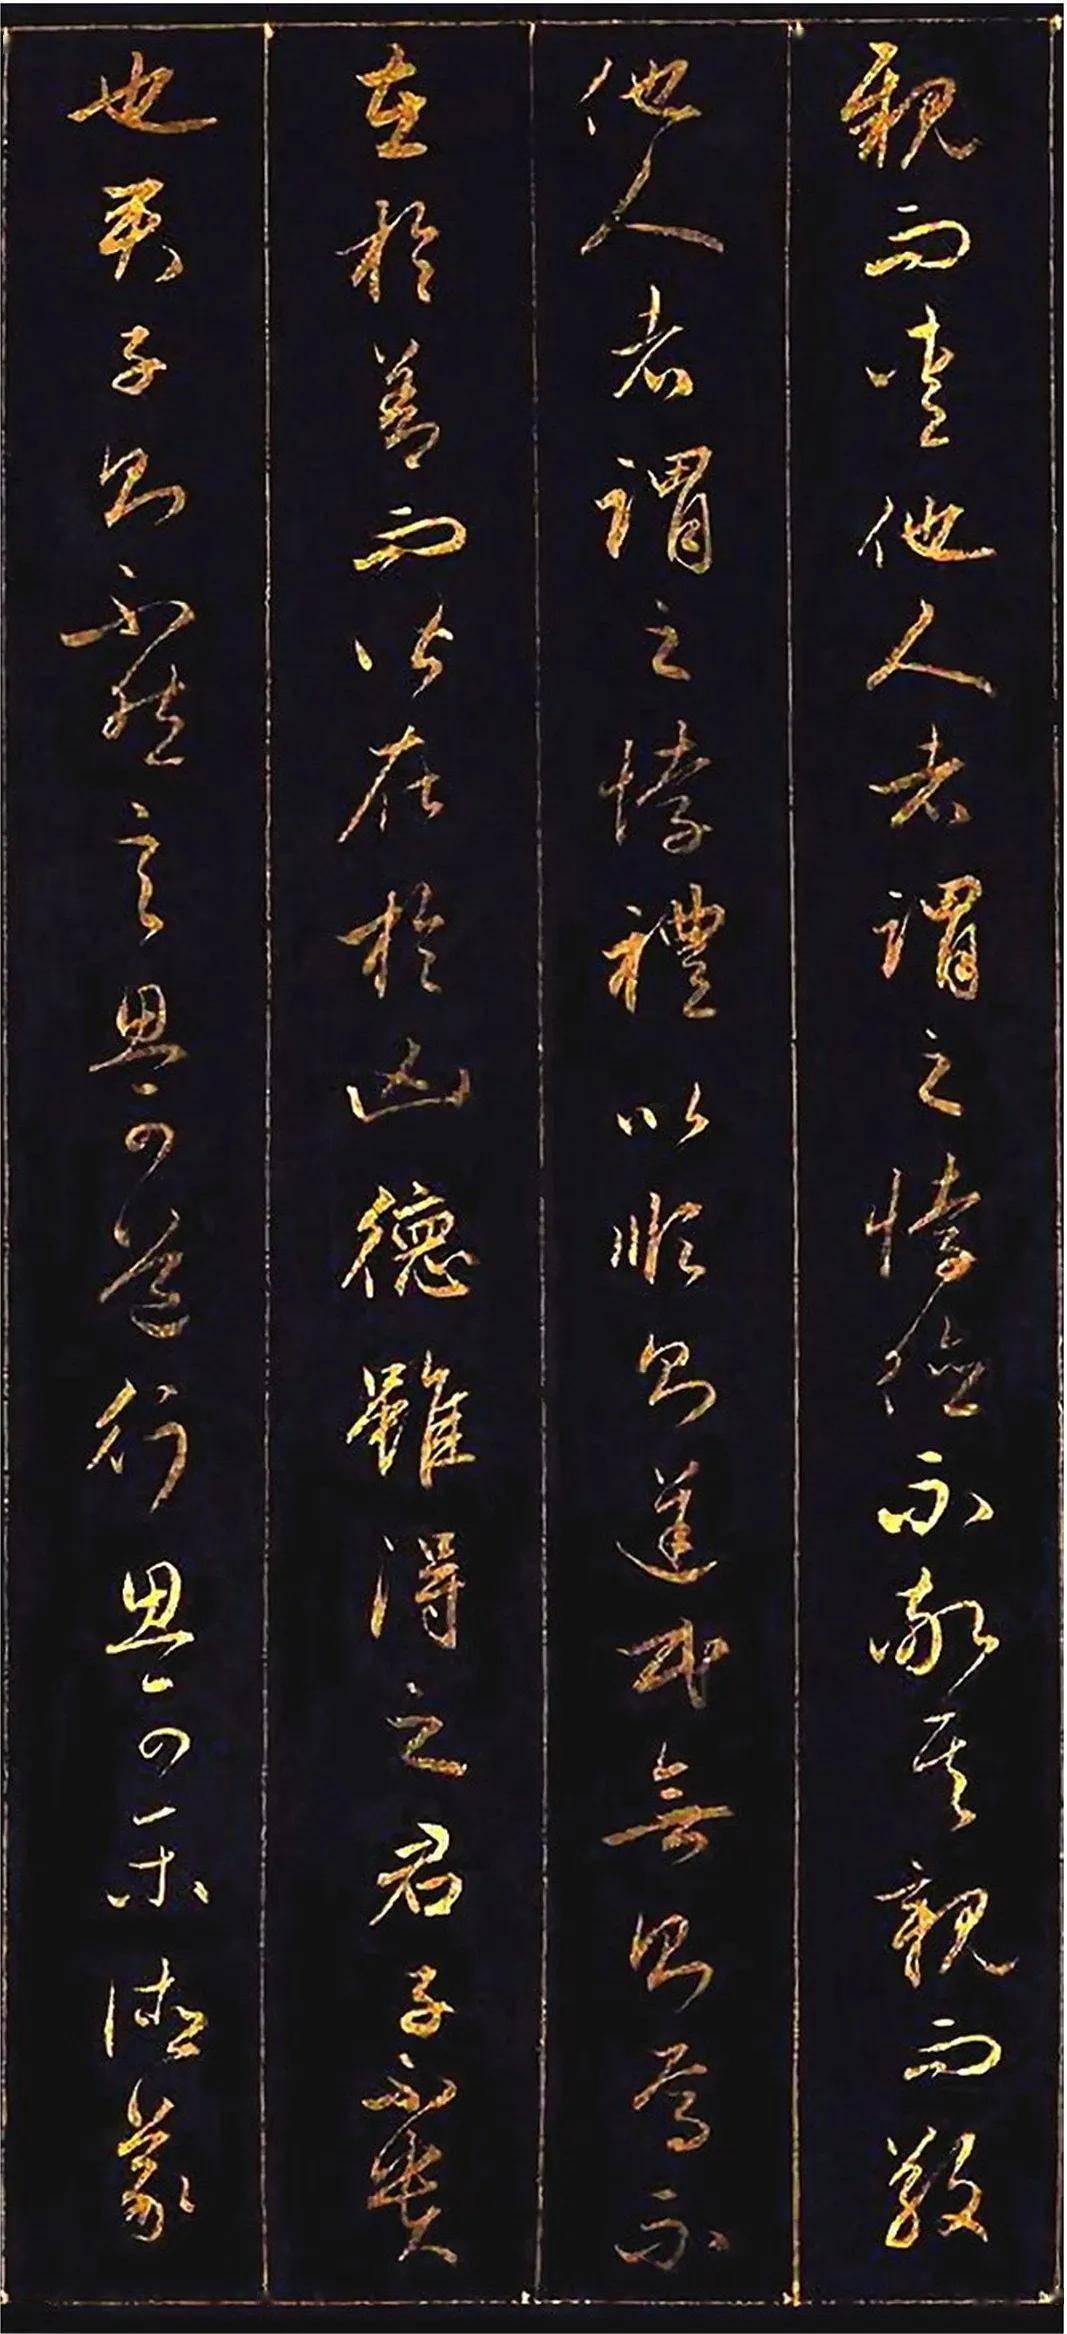 親而愛他人者謂之悖德不敬其親而敬
他人者謂之悖禮以順則逆民無則焉不
在於善而皆在於凶德雖得之君子不貴
也君子則不然言思可道行思可樂德義